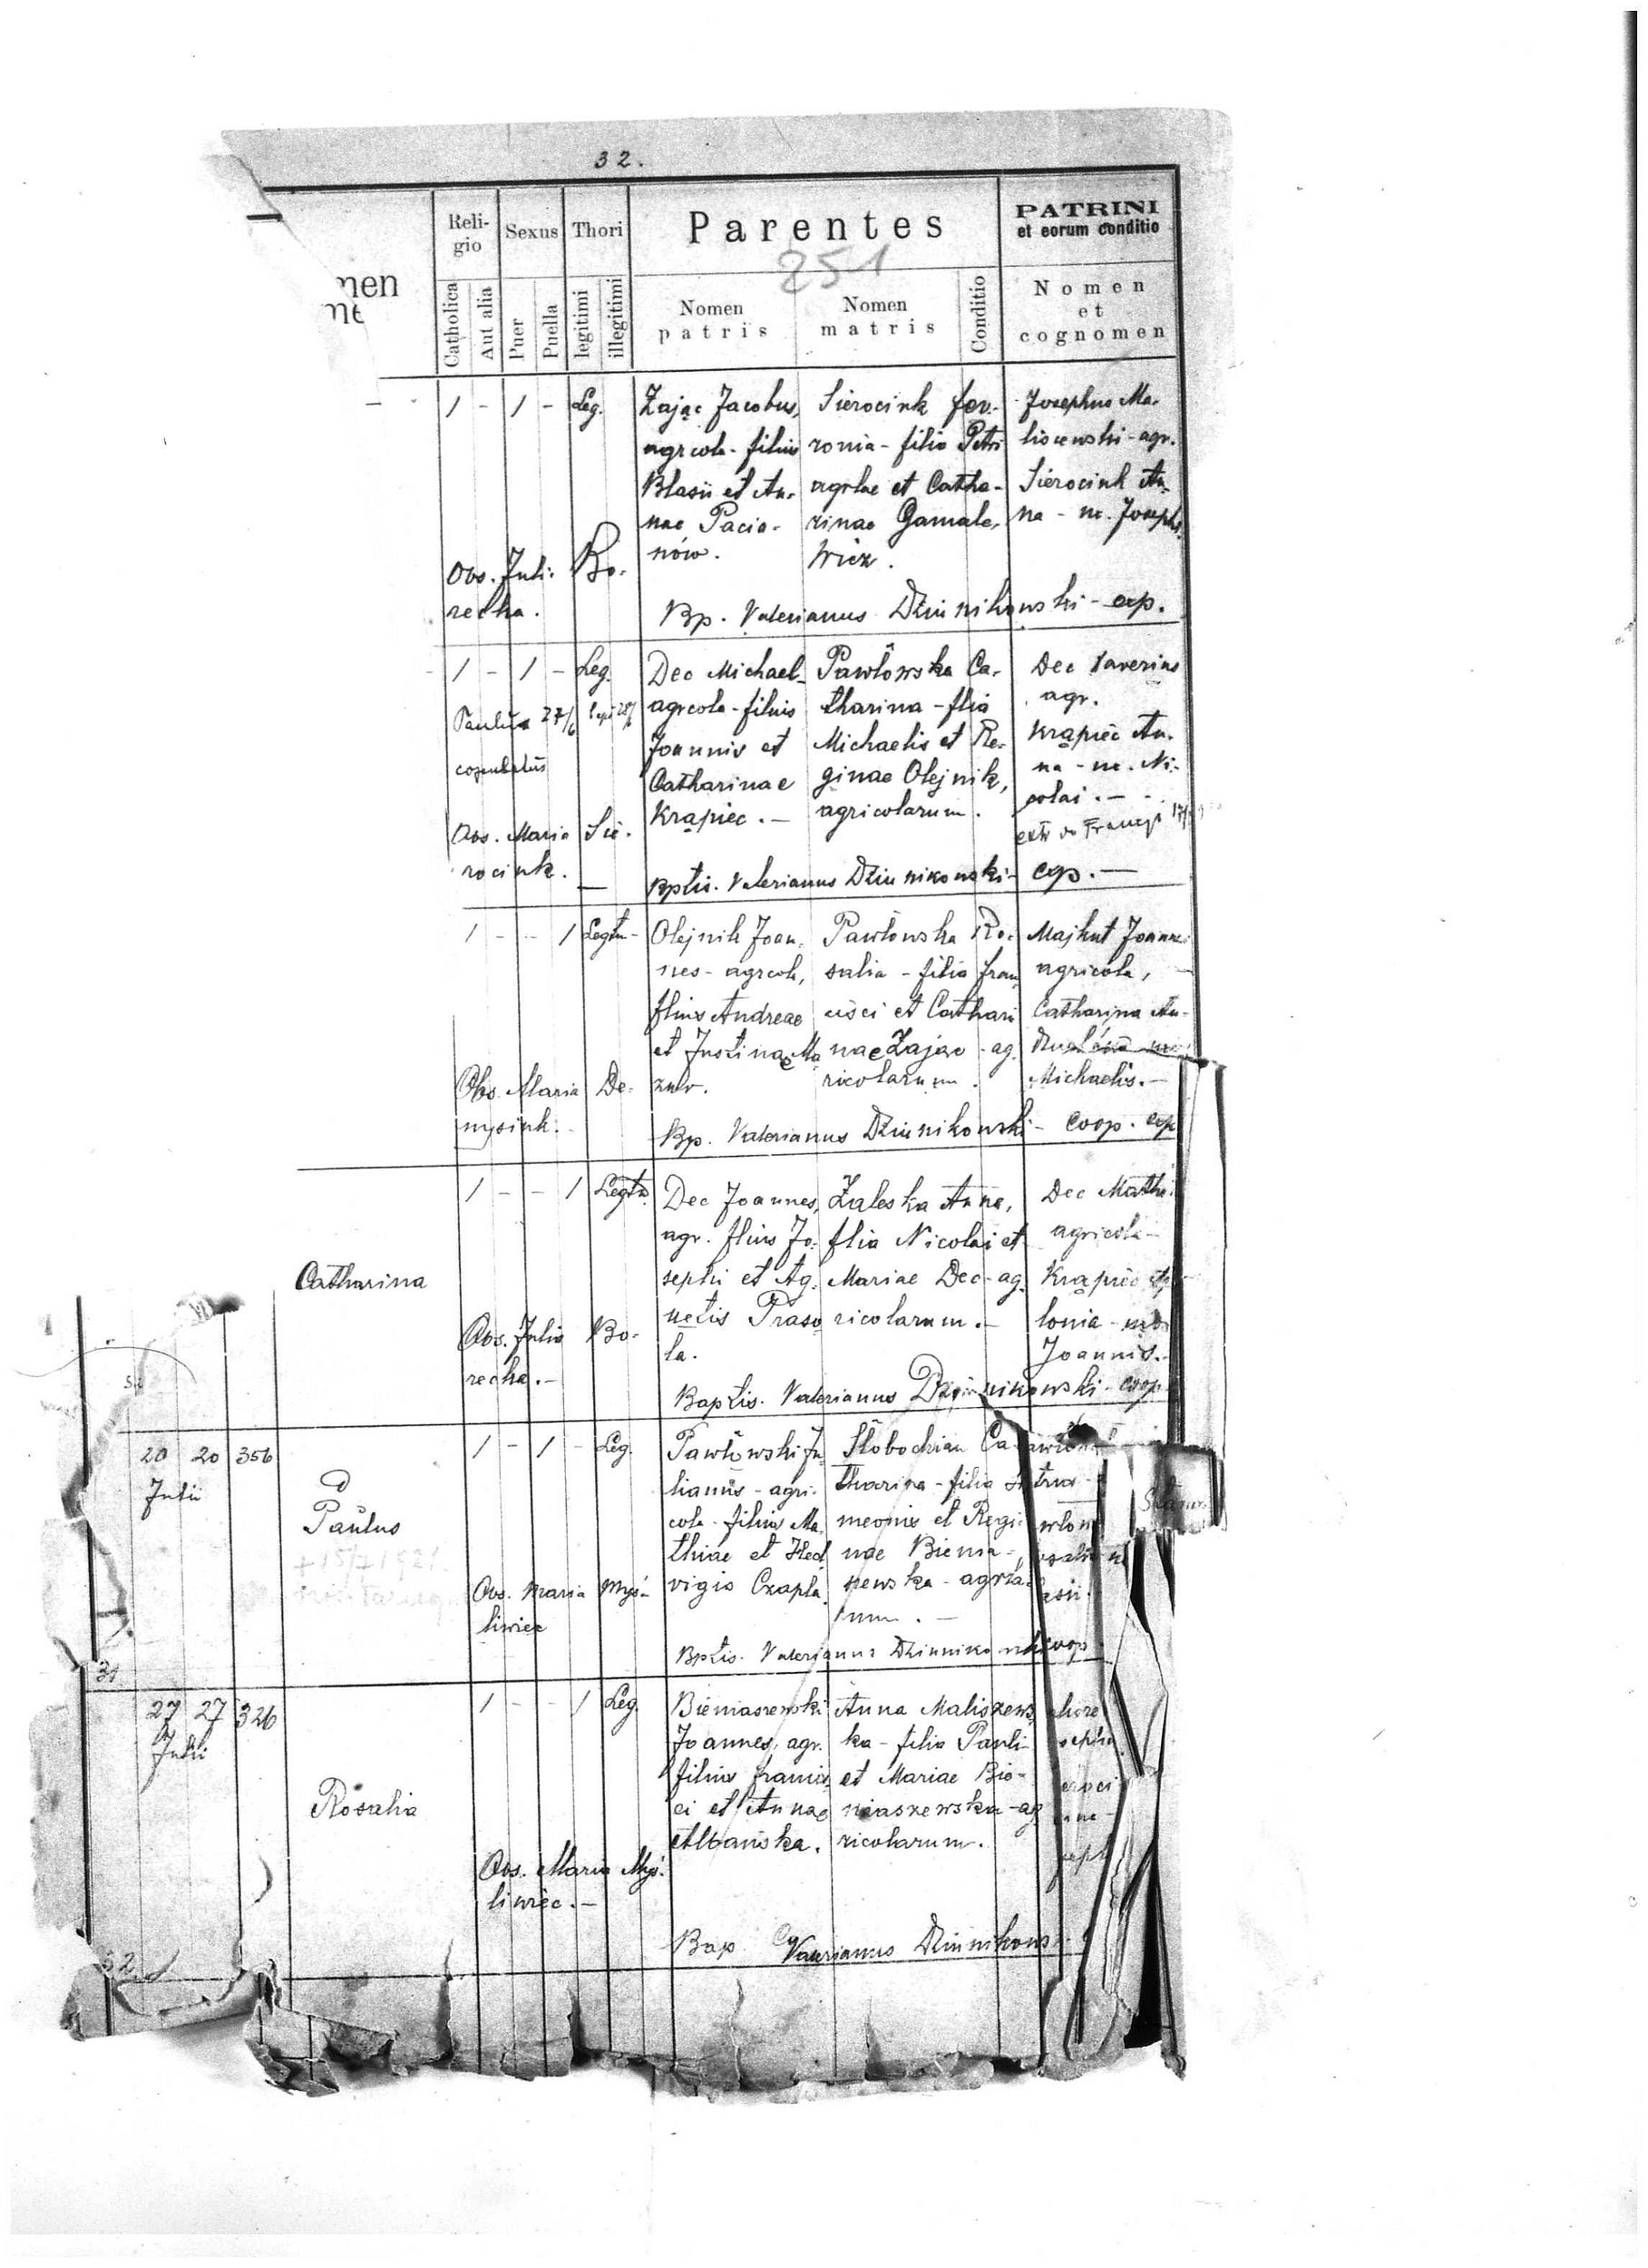 32.
Reli-
gio
Sexus
Thori
Parentes
251
PATRINI
et eorum conditio
Catholica
Aut alia
Puer
Puella
legitimi
illegitimi
Nomen
patris
Nomen
matris
Conditio
Nomen
et
cognomen
1 - 1 - Leg.
Zając Jacobus,
agrcola - filius
Blasii et An-
nae Pacio-
nów.
Sierocink
ronia - filia Petri
agrlae et Catha-
rinae Gamale-
wicz.
Josephus Ma-
liszewski - agr.
Sierocink An-
na - m. Josephi.
Obs. Juli. Bo-
recka.
Bp. Valerianus Dziunikowski - cop.
1 - 1 - Leg.
Paulus 27/6
Obs. Maria Sie-
rocink.
Dec Michael -
agrcola - filius
Joannis et
Catharinae
Krąpiec. -
Pawłowska Ca-
tharina - flia
Michaelis et Re-
ginae Olejnik,
agricolarum.
Dec Xaverius
agr.
Krąpiec An-
na - m. Ni-
colai. -
Bptis. Valerianus Dziunikowski - cop. -
1 - - 1 Legtm -
Obs. Maria De-
mysink.
Olejnik Joan-
nes - agrcola,
flius Andreae
et Justinae Ma
zur.
Pawłowska Ro-
salia - filia Fran
cisci et Cathari
nae Zając - ag.
ricolarum.
Majkut Joannes
agricola,
Catharina An-
Michaelis. -
Bp. Valerianus Dziunikowski - Coop. cop
Catharina
1 - - 1 Legtm.
Obs. Julia Bo-
recka. -
Dec Joannes,
agr. flius Jo-
sephi et Ag-
netis Praso
la.
Zaleska Anna,
flia Nicolai et
Mariae Dec - ag
ricolarum. -
Dec Mathi
agricola -
Krąpiec Ap
lonia -
Joannis. -
Baptis. Valerianus Dziunikowski - coop
20 20 356
Julii
Paulus
1 - 1 - Leg.
Obs. Maria Myś-
liwiec
Pawłowski Ju
lianus - agri-
cola - filius Ma-
thiae et Hed
vigis Czapla.
Słobodzian Ca
tharina - filia Si
meonis et Regi-
nae Bienia-
szewska - agrla-
rum. -
Bptis. Valerianus Dziunikowski coop
31
27 27 326
Julii
Rosalia
1 - - 1 Leg.
Obs. Maria Myś-
liwiec. -
Bieniaszewski
Joannes, agr.
filius Francis
ci et Annae
Albańska.
Anna Maliszews
ka - filia Pauli
et Mariae Bie-
niaszewska - ag
ricolarum.
Bap. Valerianus Dziunikows
32